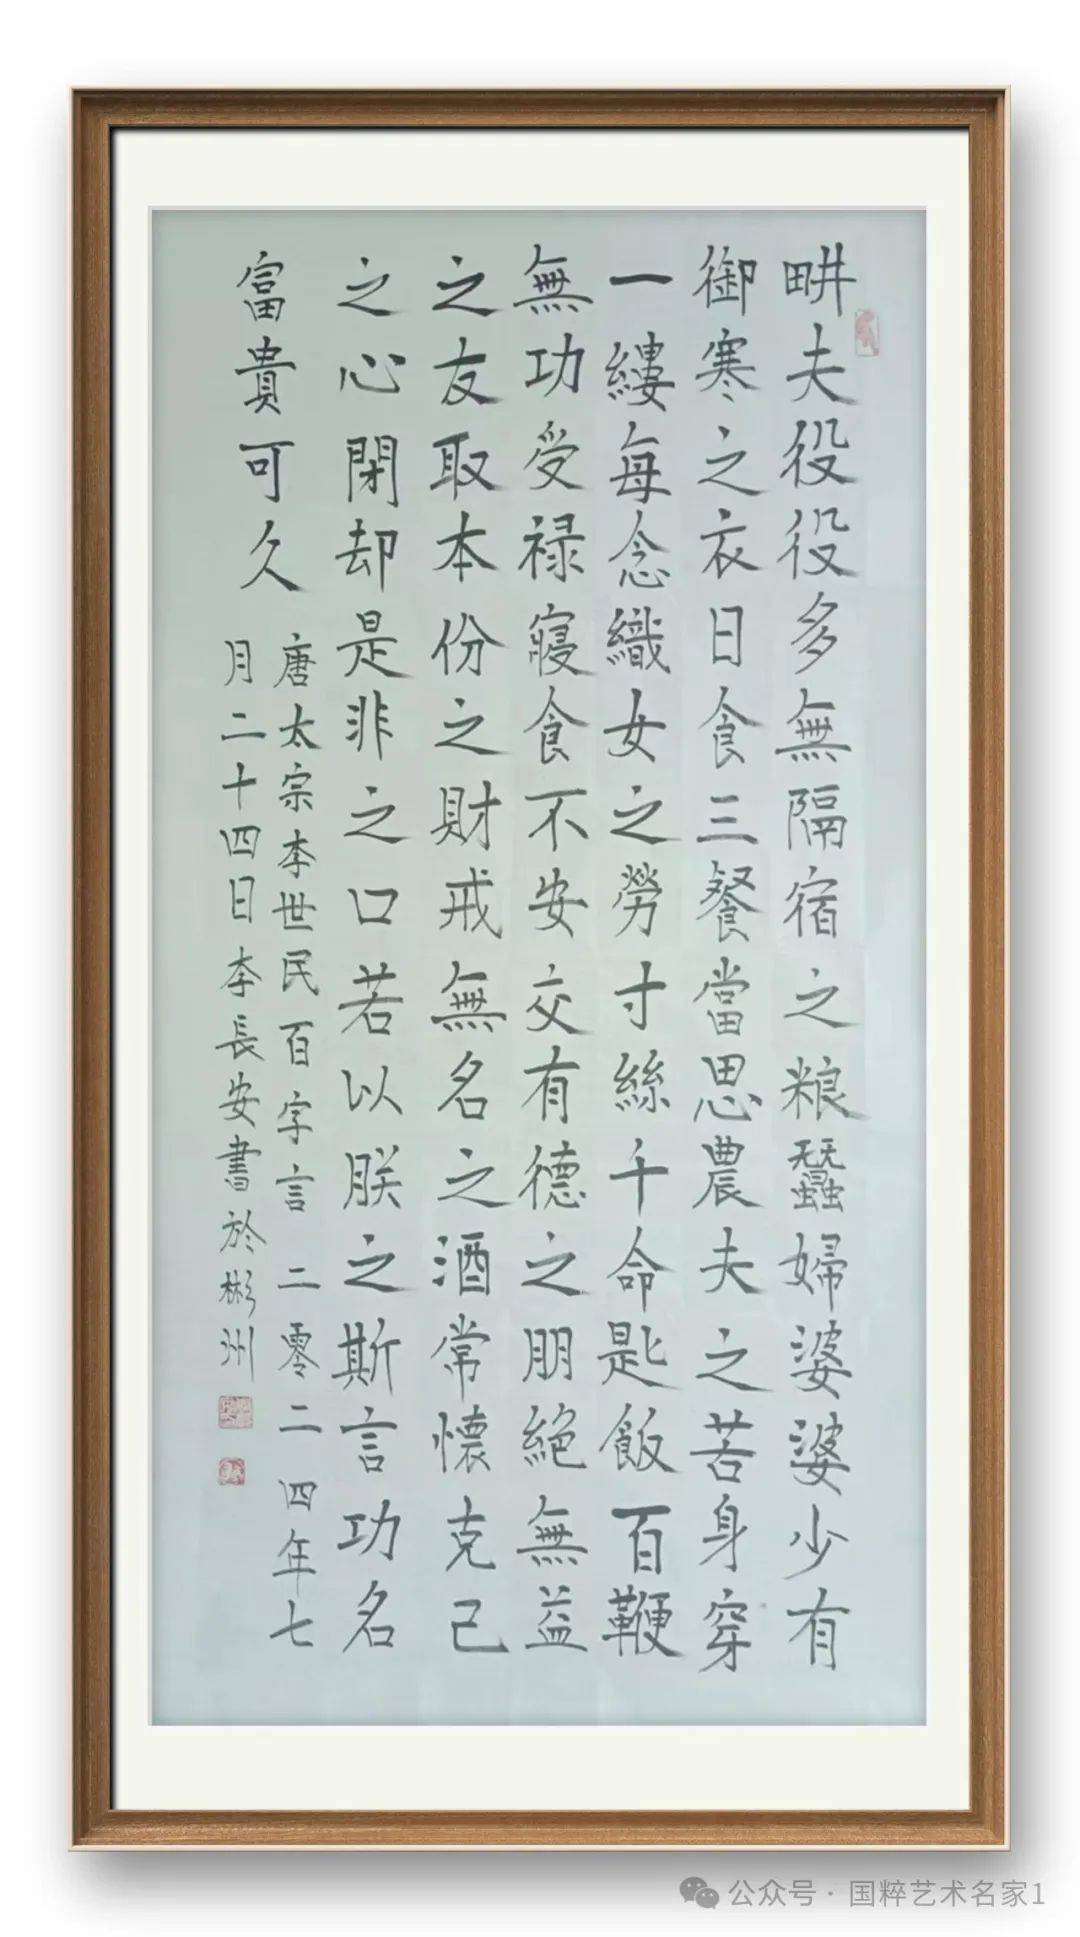 畊夫役役多無隔宿之粮蠶婦婆婆少有
御寒之衣日食三餐當思農夫之苦身穿
一縷每念織女之勞寸絲千命匙飯百鞭
無功受禄寢食不安交有德之朋絕無益
之友取本份之財戒無名之酒常懷克己
之心閉却是非之口若以朕之斯言功名
富貴可久
唐太宗李世民百字言二零二四年七
月二十四日李長安書於彬州
公众号·国粹艺术名家1